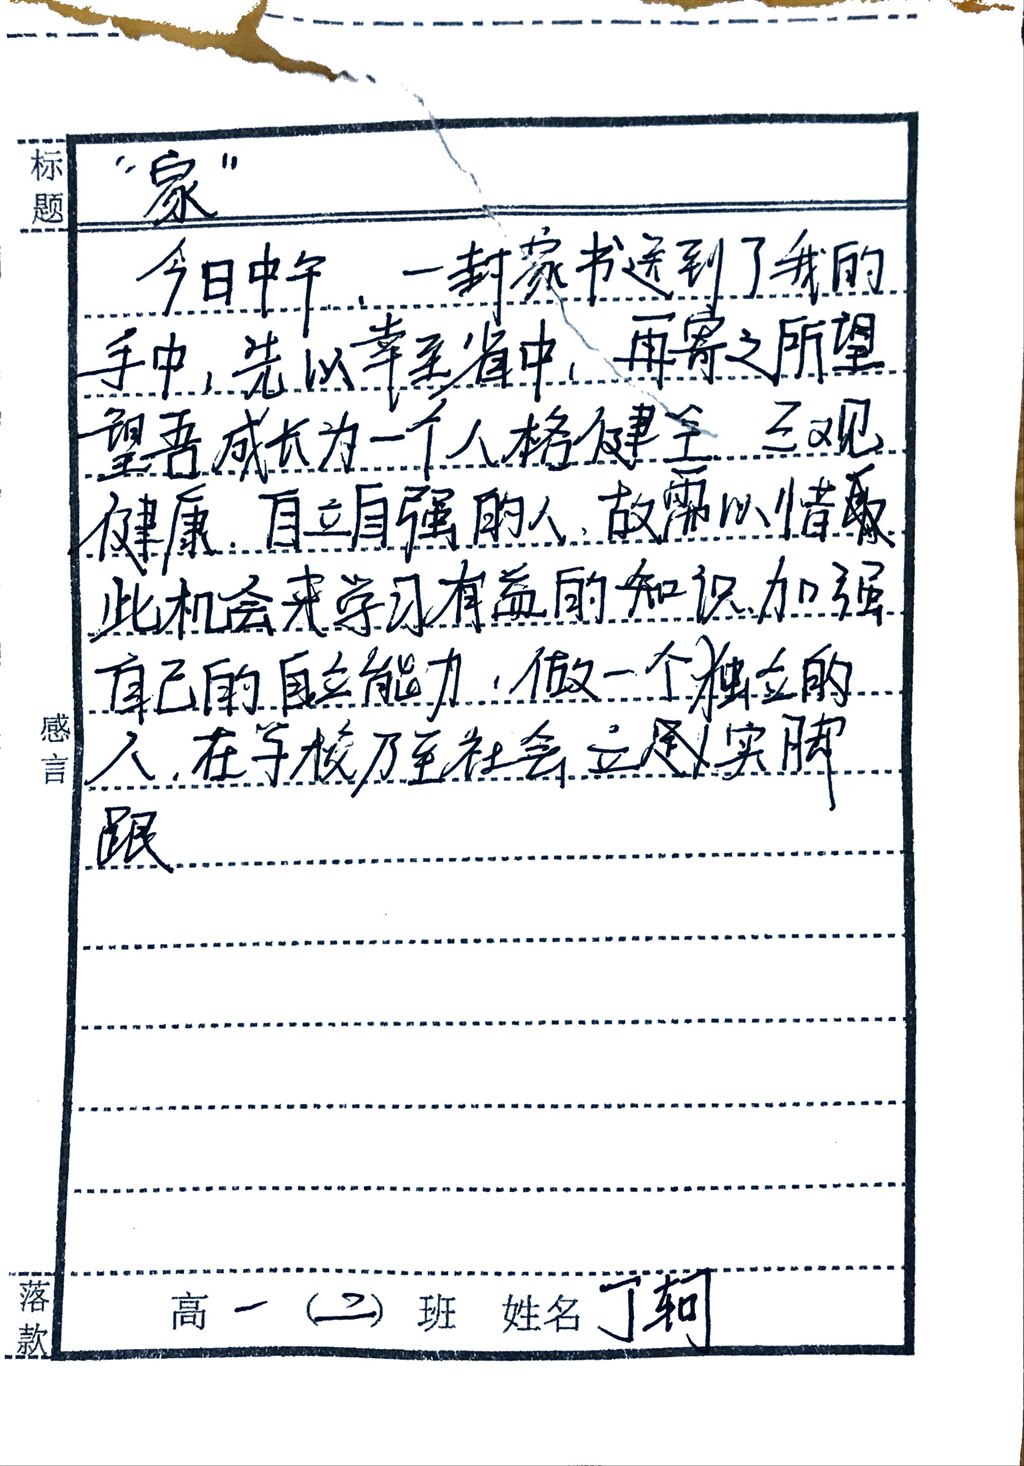 标题 “家”
今日中午，一封家书送到了我的
手中，先以幸至省中，再寄之所望
望吾成长为一个人格健全、三观
健康、自立自强的人，故需以惜取
此机会来学习有益的知识、加强
自己的自立能力，做一个独立的
人，在学校乃至社会立实脚
跟
感言
落款 高一（二）班 姓名 丁轲